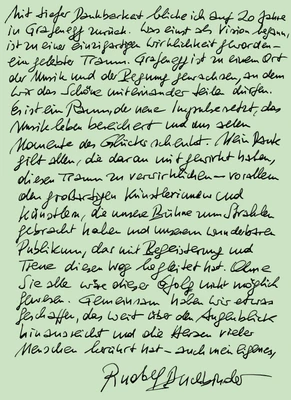 Mit tiefer Dankbarkeit blicke ich auf 20 Jahre
in Grafenegg zurück. Was einst als Vision begann,
ist zu einer einzigartigen Wirklichkeit geworden –
ein gelebter Traum. Grafenegg ist zu einem Ort
der Musik und der Begegnung gewachsen, an dem
wir das Schöne miteinander teilen dürfen.
Es ist ein Raum, der neue Impulse setzt, das
Musikleben bereichert und uns allen
Momente des Glücks schenkt. Mein Dank
gilt allen, die daran mitgewirkt haben,
diesen Traum zu verwirklichen – vor allem
den großartigen Künstlerinnen und
Künstlern, die unsere Bühne zum Strahlen
gebracht haben und unserem wunderbaren
Publikum, das mit Begeisterung und
Treue diesen Weg begleitet hat. Ohne
Sie alle wäre dieser Erfolg nicht möglich
gewesen. Gemeinsam haben wir etwas
geschaffen, das weit über den Augenblick
hinausreicht und die Herzen vieler
Menschen berührt hat – auch mein eigenes.
Rudolf Buchbinder